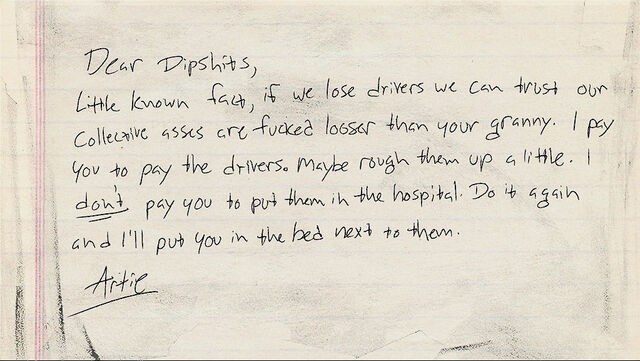 Dear Dipshits,
Little known fact, if we lose drivers we can trust our
collective asses are fucked looser than your granny. I pay
you to pay the drivers. Maybe rough them up a little. I
don't pay you to put them in the hospital. Do it again
and I'll put you in the bed next to them.
Artie